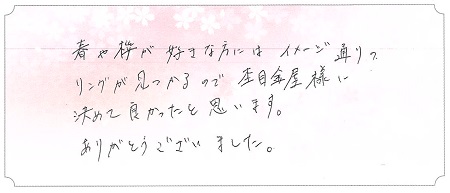 春や桜が好きな方には イメージ通りの
リングが見つかるので 杢目金屋様に
決めて良かったと思います。
ありがとうございました。